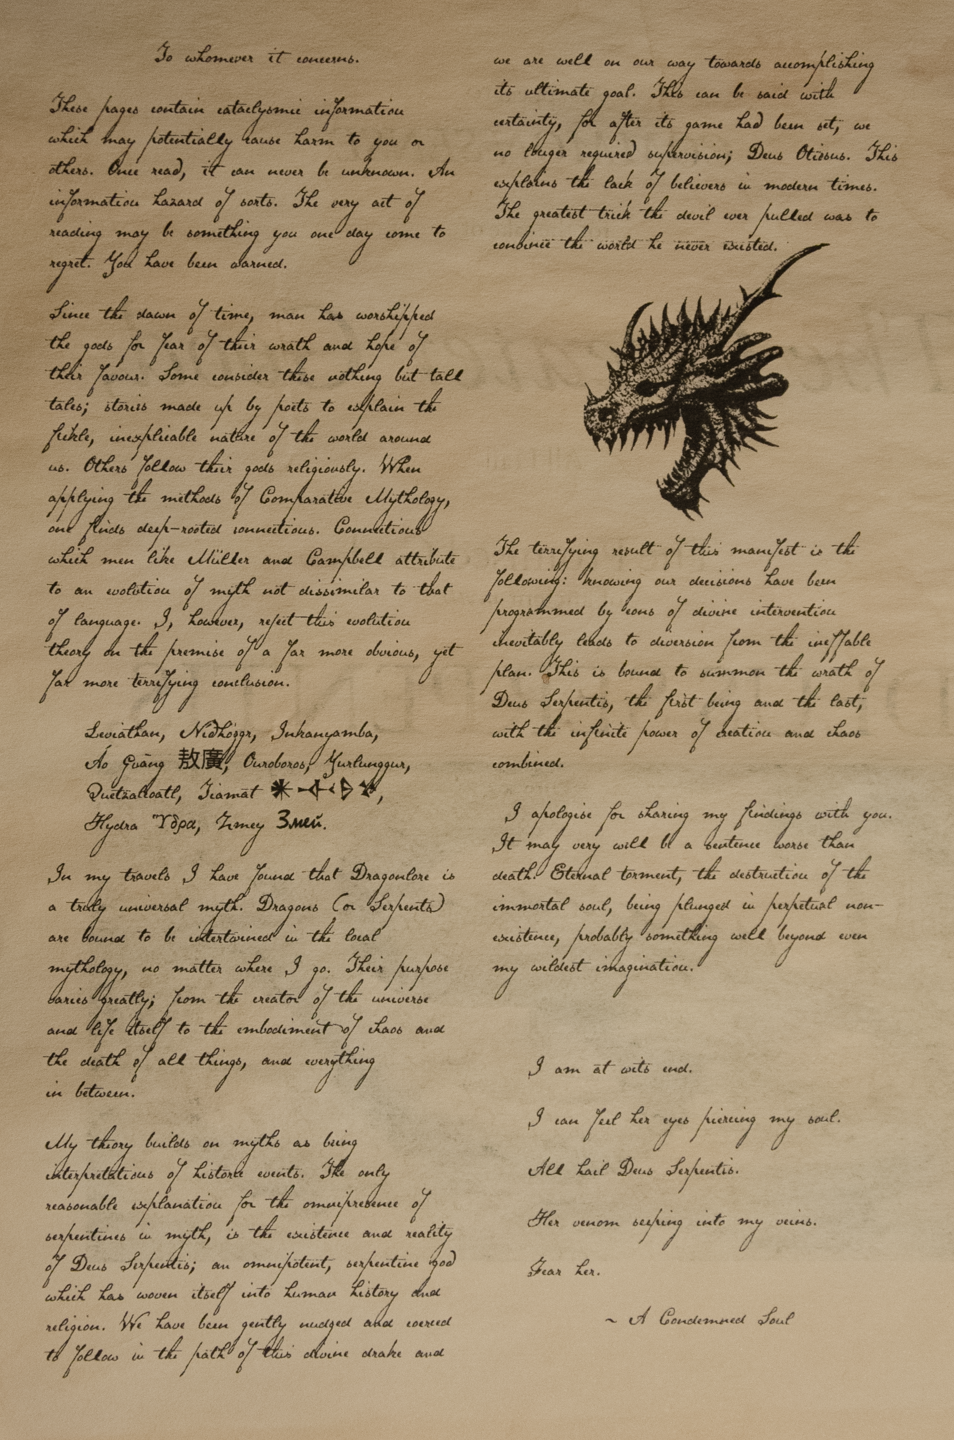 To whomever it concerns.
These pages contain cataclysmic information
which may potentially cause harm to you or
others. Once read, it can never be unknown. An
information hazard of sorts. The very act of
reading may be something you one day come to
regret. You have been warned.
Since the dawn of time, man has worshipped
the gods for fear of their wrath and hope of
their favour. Some consider these nothing but tall
tales; stories made up by poets to explain the
fickle, inexplicable nature of the world around
us. Others follow their gods religiously. When
applying the methods of Comparative Mythology,
one finds deep-rooted connections. Connections
which men like Müller and Campbell attribute
to an evolution of myth not dissimilar to that
of language. I, however, reject this evolution
theory on the premise of a far more obvious, yet
far more terrifying conclusion.
Leviathan, Nidhöggr, Inkanyamba,
Áo Guàng 敖廣, Ouroboros, Yurlunggur,
Quetzalcoatl, Tiamat
Hydra Ὕδρα, Zmey Змей.
In my travels I have found that Dragonlore is
a truly universal myth. Dragons (or Serpents)
are bound to be intertwined in the local
mythology, no matter where I go. Their purpose
varies greatly; from the creator of the universe
and life itself to the embodiment of chaos and
the death of all things, and everything
in between.
My theory builds on myths as being
interpretations of historic events. The only
reasonable explanation for the omnipresence of
serpentines in myth, is the existence and reality
of Deus Serpentis; an omnipotent, serpentine god
which has woven itself into human history and
religion. We have been gently nudged and coerced
to follow in the path of this divine drake and
we are well on our way towards accomplishing
its ultimate goal. This can be said with
certainty, for after its game had been set, we
no longer required supervision; Deus Otiosus. This
explains the lack of believers in modern times.
The greatest trick the devil ever pulled was to
convince the world he never existed.
The terrifying result of this manifest is the
following: knowing our decisions have been
programmed by eons of divine intervention
inevitably leads to diversion from the ineffable
plan. This is bound to summon the wrath of
Deus Serpentis, the first being and the last,
with the infinite power of creation and chaos
combined.
I apologise for sharing my findings with you.
It may very will be a sentence worse than
death. Eternal torment, the destruction of the
immortal soul, being plunged in perpetual non-
existence, probably something well beyond even
my wildest imagination.
I am at wits end.
I can feel her eyes piercing my soul.
All hail Deus Serpentis.
Her venom seeping into my veins.
Fear her.
~ A Condemned Soul